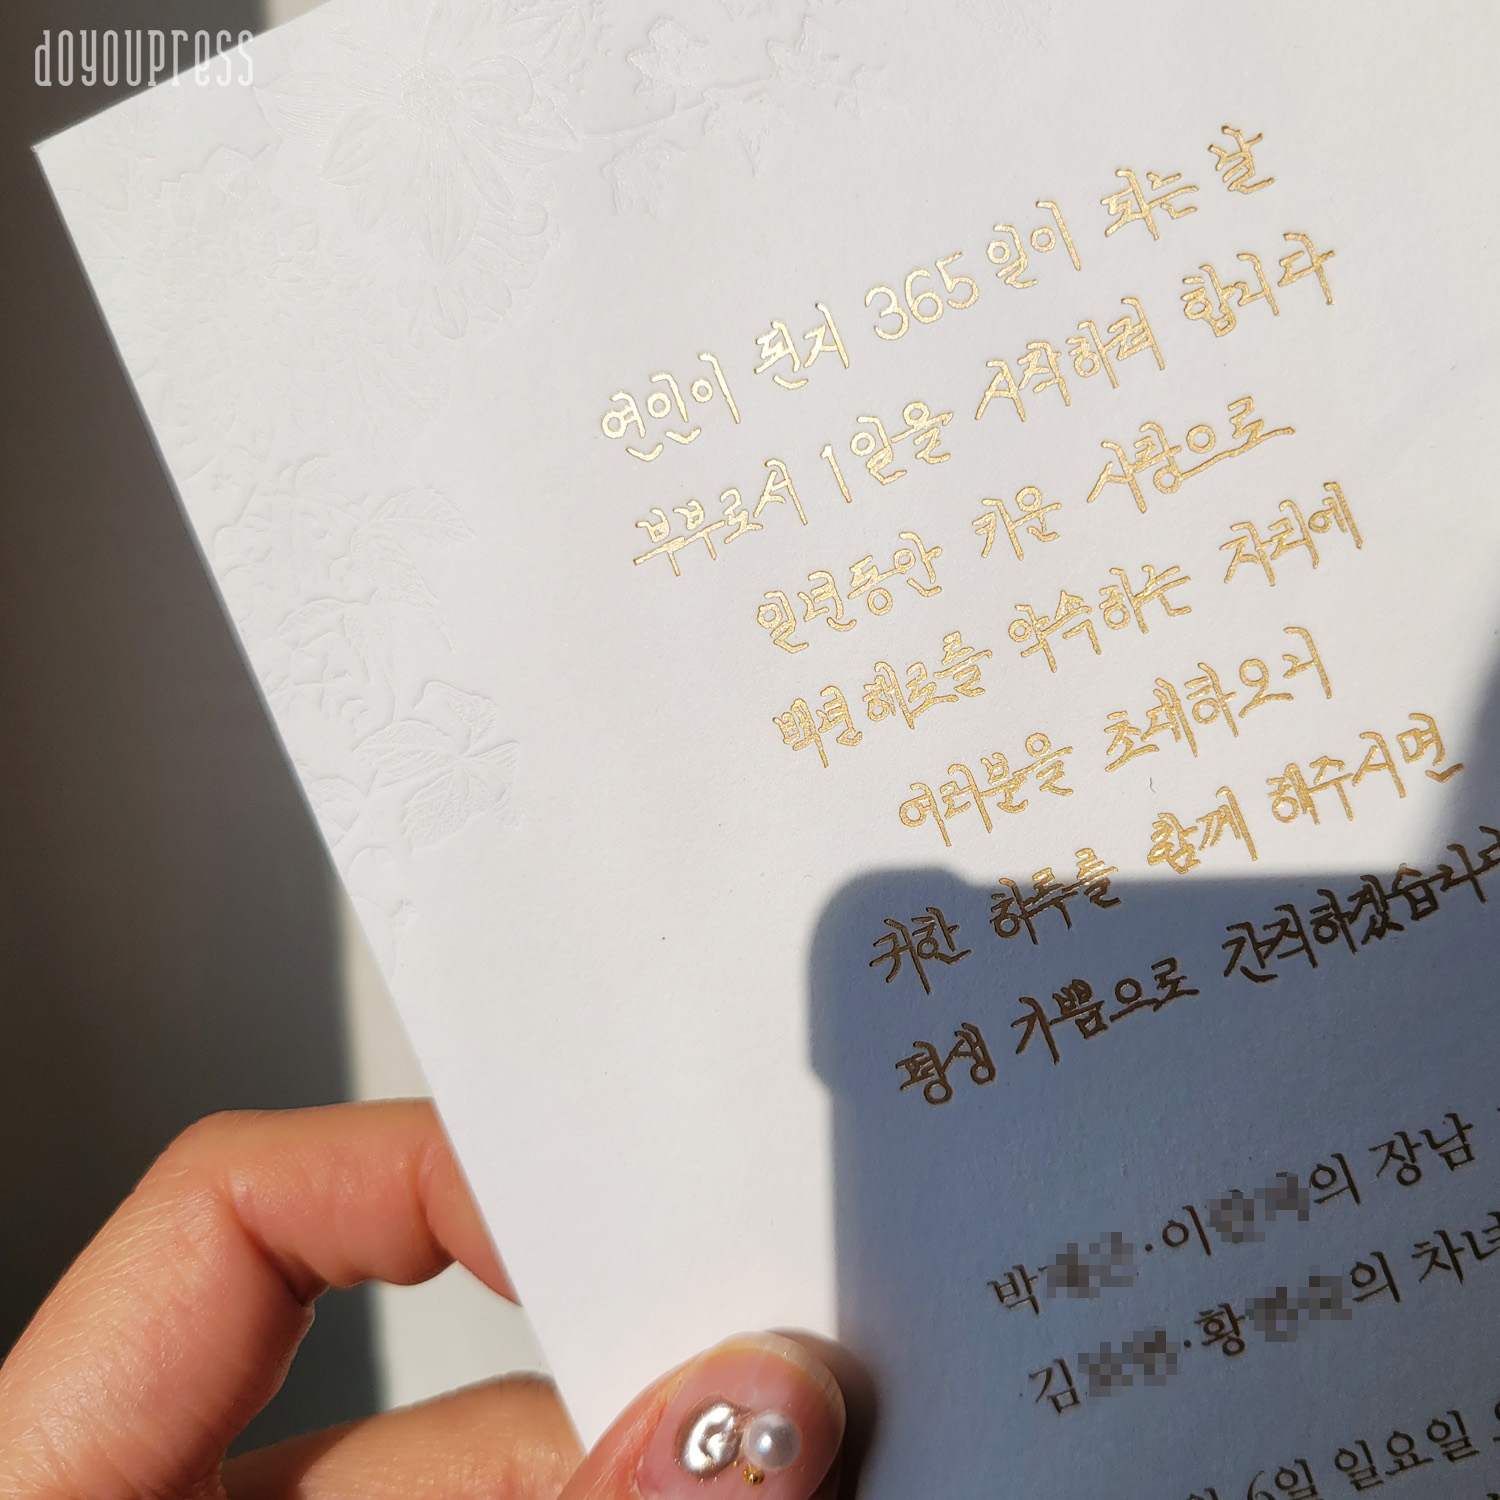 doyoupress
연인이 된지 365일이 되는 날
부부로서 1일을 시작하려 합니다
일년동안 키운 사랑으로
백년해로를 약속하는 자리에
여러분을 초대하오니
귀한 하루를 함께 해주시면
평생 기쁨으로 간직하겠습니다
박 · 이 의 장남
김 · 황 의 차녀
6일 일요일